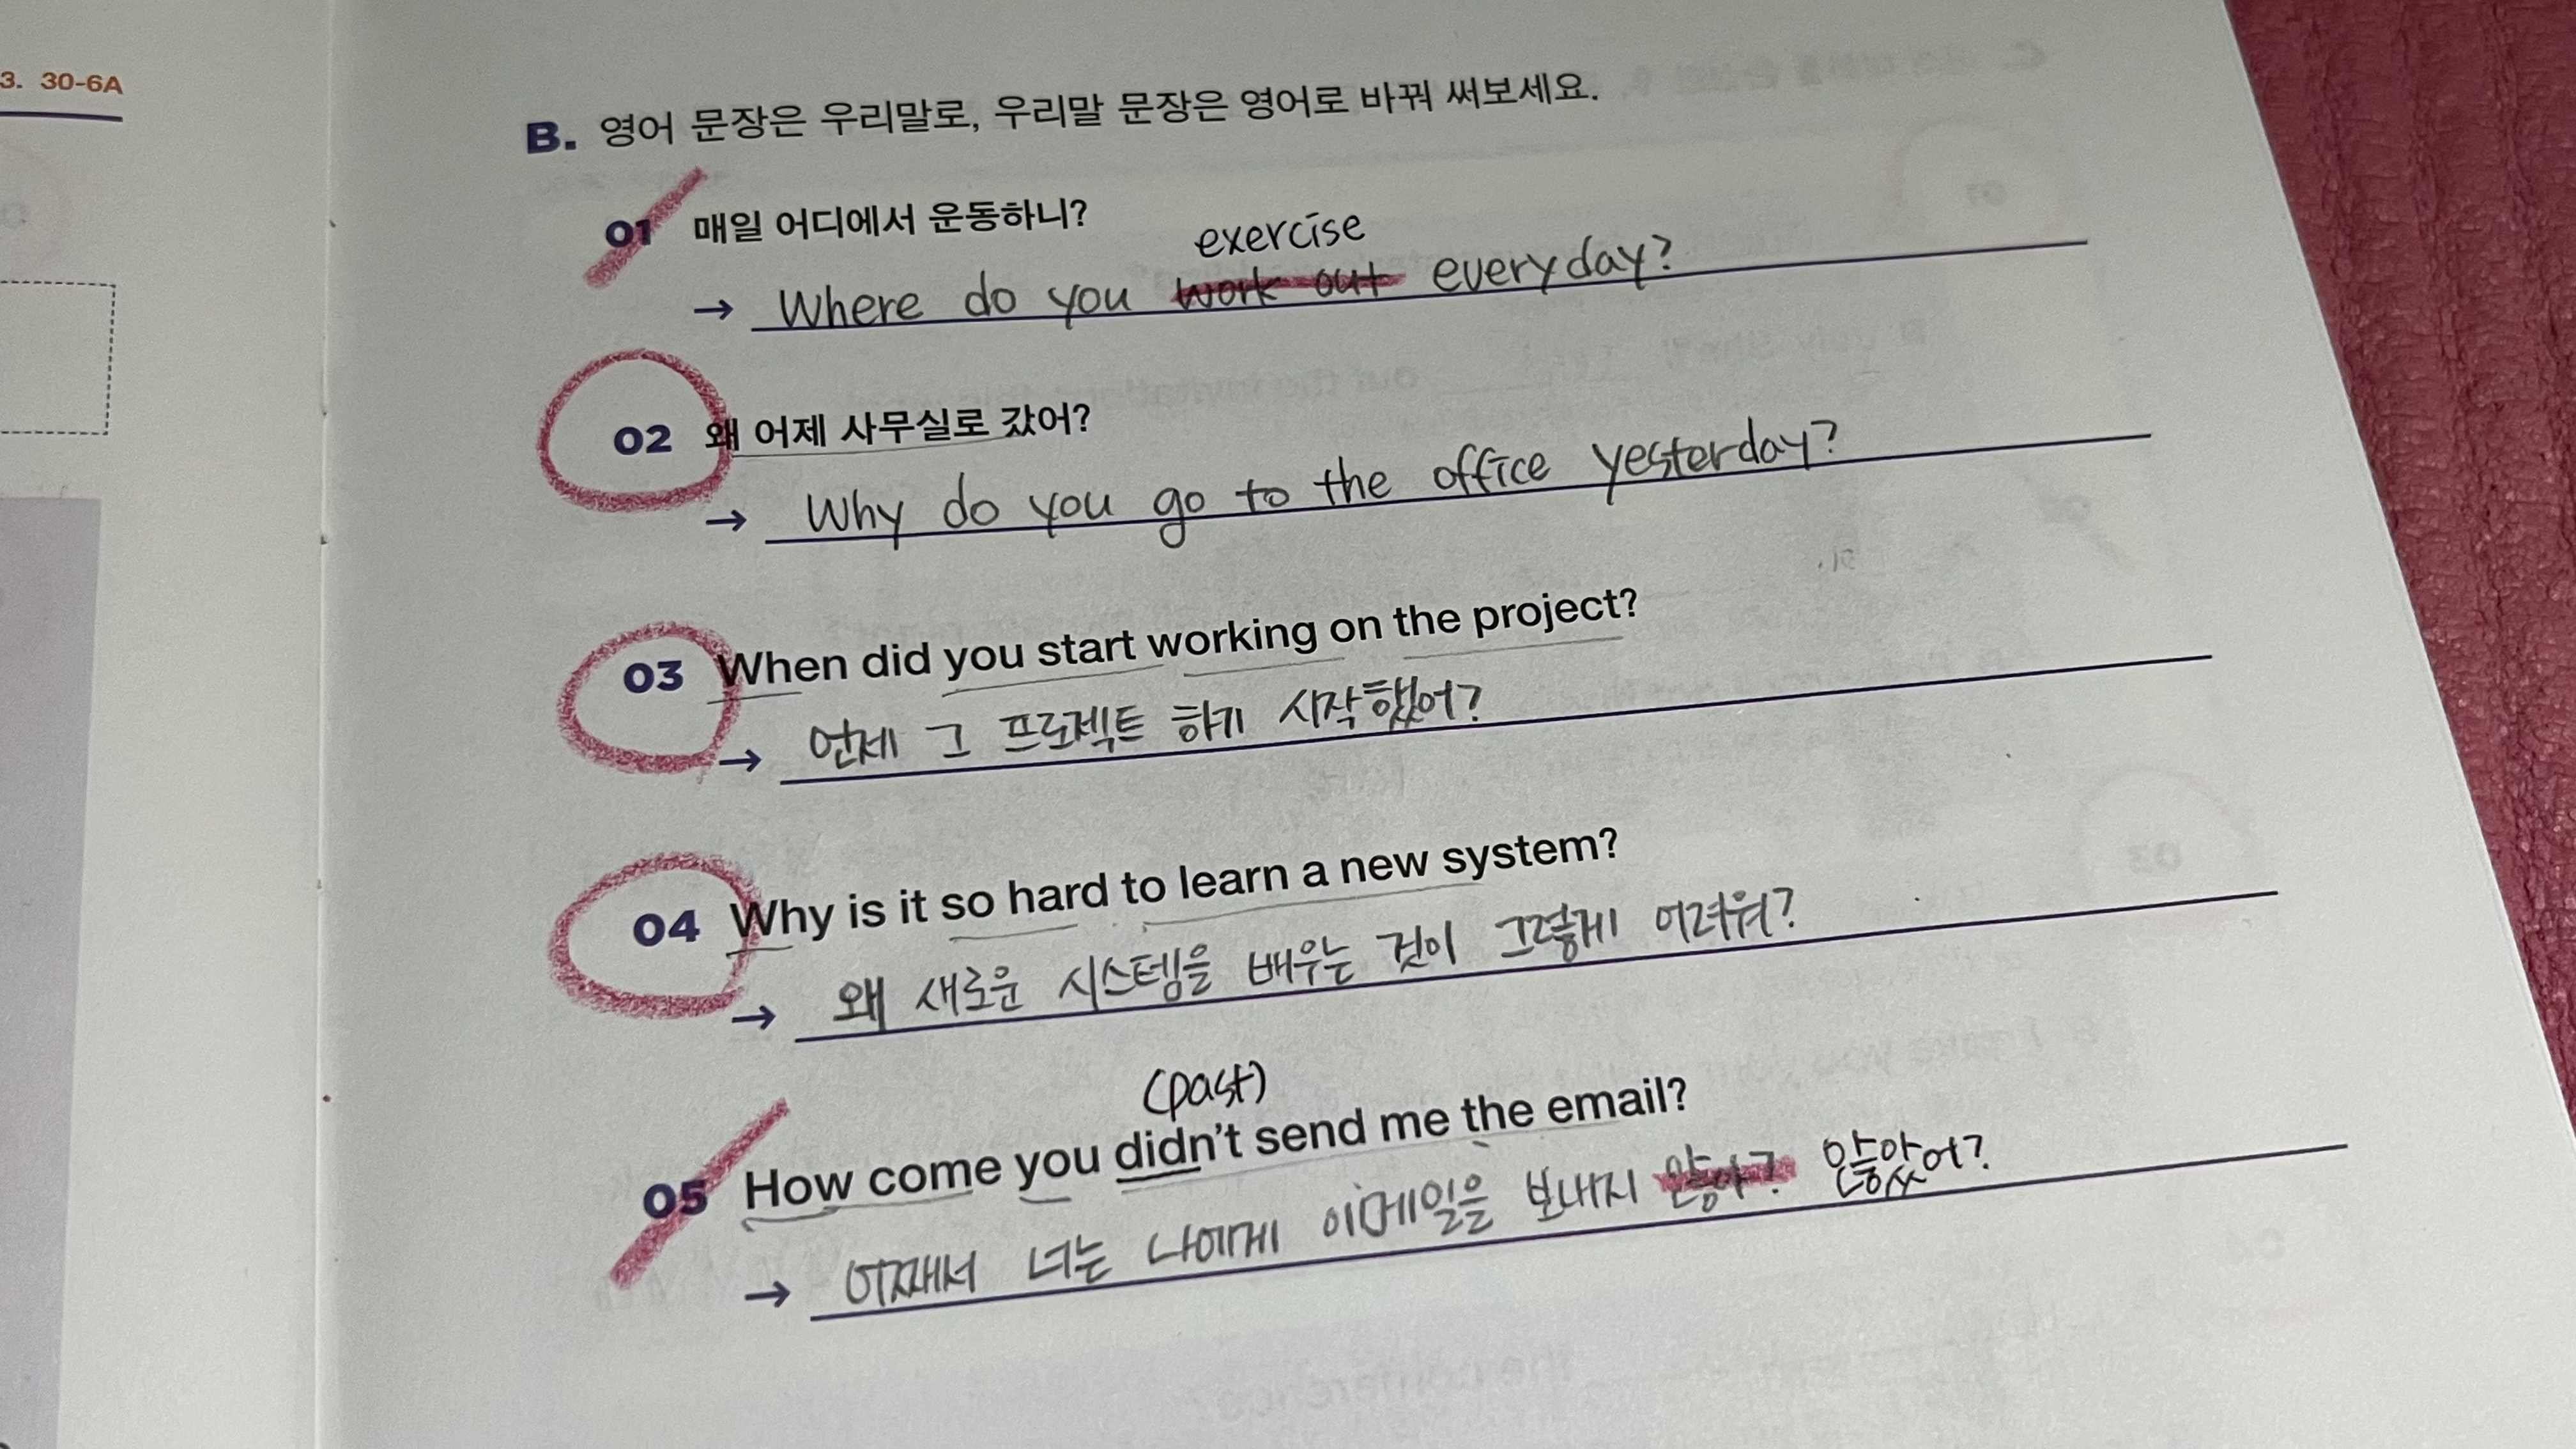 3. 30-6A
B. 영어 문장은 우리말로, 우리말 문장은 영어로 바꿔 써보세요.
01 매일 어디에서 운동하니?
exercise
→ Where do you work out everyday?
02 왜 어제 사무실로 갔어?
→ Why do you go to the office yesterday?
03 When did you start working on the project?
→ 언제 그 프로젝트 하기 시작했어?
04 Why is it so hard to learn a new system?
→ 왜 새로운 시스템을 배우는 것이 그렇게 어려워?
(past)
05 How come you didn't send me the email?
→ 어째서 너는 나에게 이메일을 보내지 않아? 않았어?